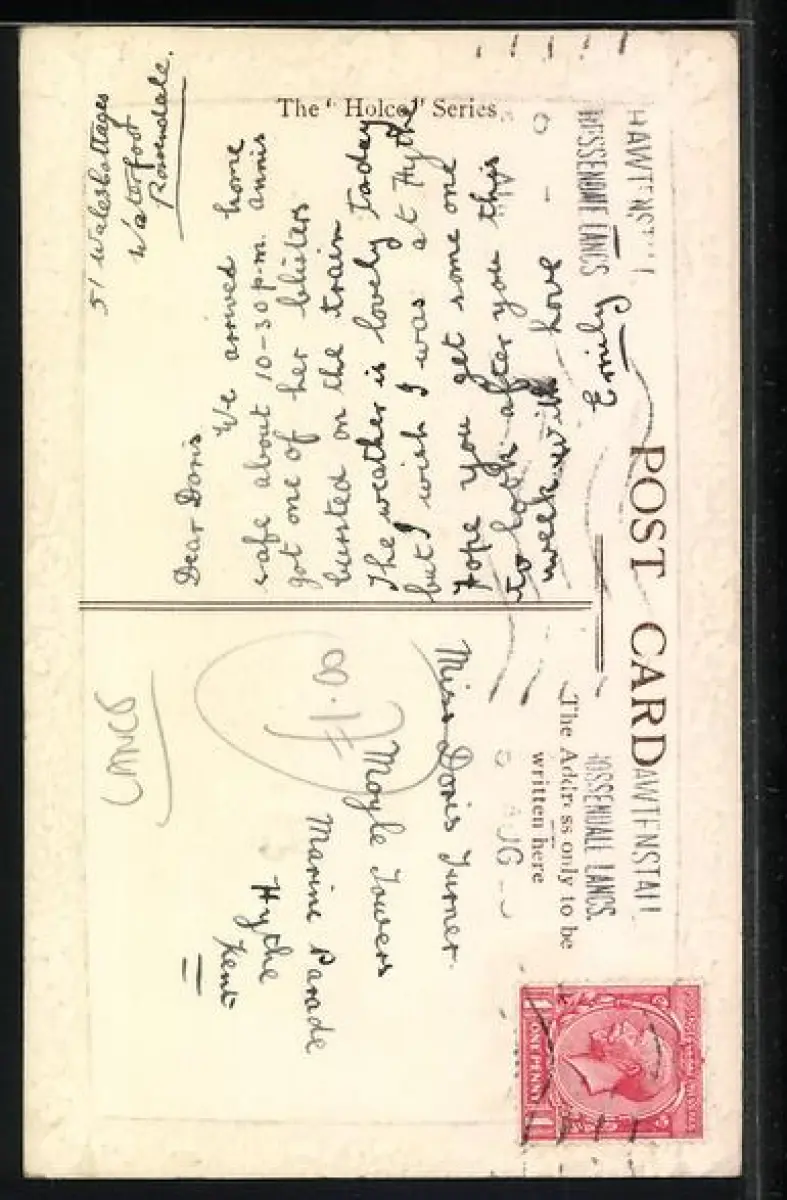 The "Holco" Series
POST CARD
The Address only to be
written here
RAWTENSTALL
ROSSENDALE LANCS.
RAWTENSTALL
ROSSENDALE LANCS
AUG
ONE PENNY
51 Wales Cottages
Waterfoot
Rossendale.
Dear Doris
We arrived home
safe about 10-30 p.m. Annis
got one of her blisters
bursted on the train
The weather is lovely today
but I wish I was at Hythe
Hope you get some one
to look after you this
week with love
Emily
Miss Doris Turner.
Moyle Towers
Marine Parade
Hythe
Kent
LANCS
£1.00